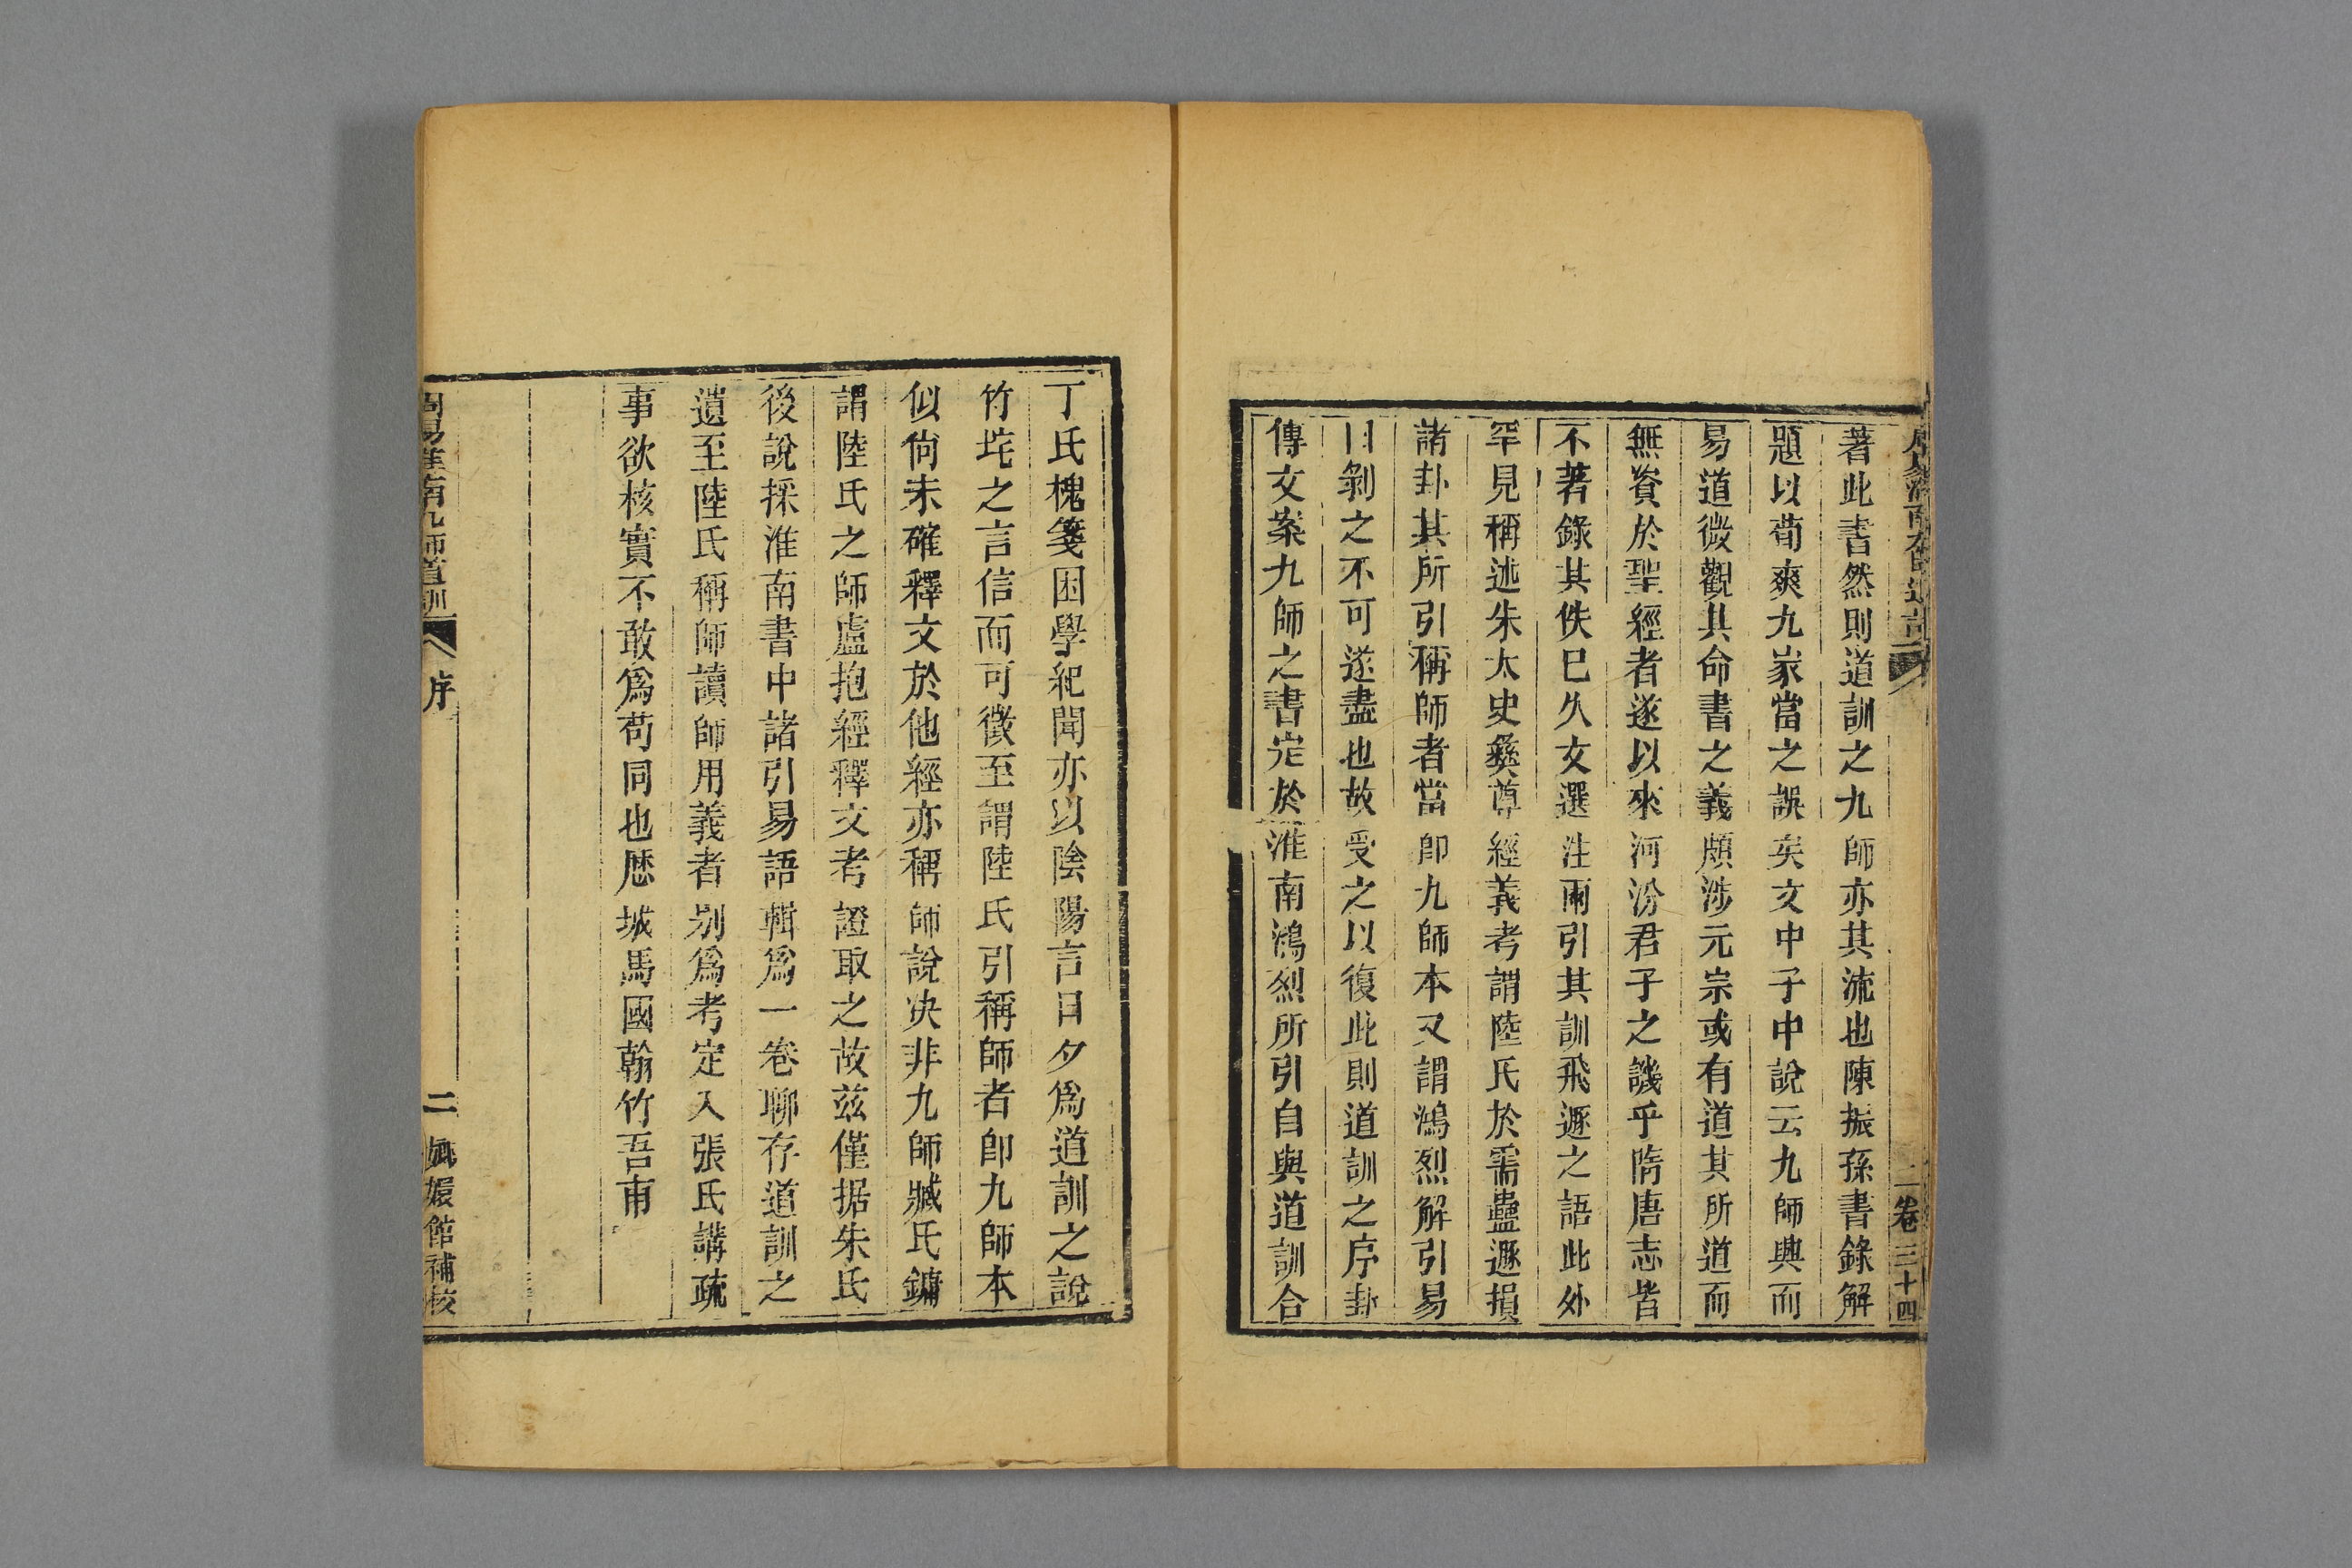 著此書然則道訓之九師亦其流也陳振孫書錄解
題以荀爽九家當之誤矣文中子中說云九師興而
易道微觀其命書之義頗涉元宗或有道其所道而
無資於聖經者遂以來河汾君子之譏乎隋唐志皆
不著錄其佚已久文選注兩引其訓飛遯之語此外
罕見稱述朱太史彝尊經義考謂陸氏於需蠱遯損
諸卦其所引稱師者當卽九師本又謂鴻烈解引易
曰剝之不可遂盡也故受之以復此則道訓之序卦
傳文案九師之書定於淮南鴻烈所引自與道訓合
二卷三十四
丁氏槐箋困學紀聞亦以陰陽言日夕爲道訓之說
竹垞之言信而可徵至謂陸氏引稱師者卽九師本
似尙未確釋文於他經亦稱師說决非九師臧氏鏞
謂陸氏之師盧抱經釋文考證取之故兹僅据朱氏
後說採淮南書中諸引易語輯爲一卷聊存道訓之
遺至陸氏稱師讀師用義者别爲考定入張氏講疏
事欲核實不敢爲苟同也歷城馬國翰竹吾甫
周易淮南九師道訓 序 二 嫏嬛館補校